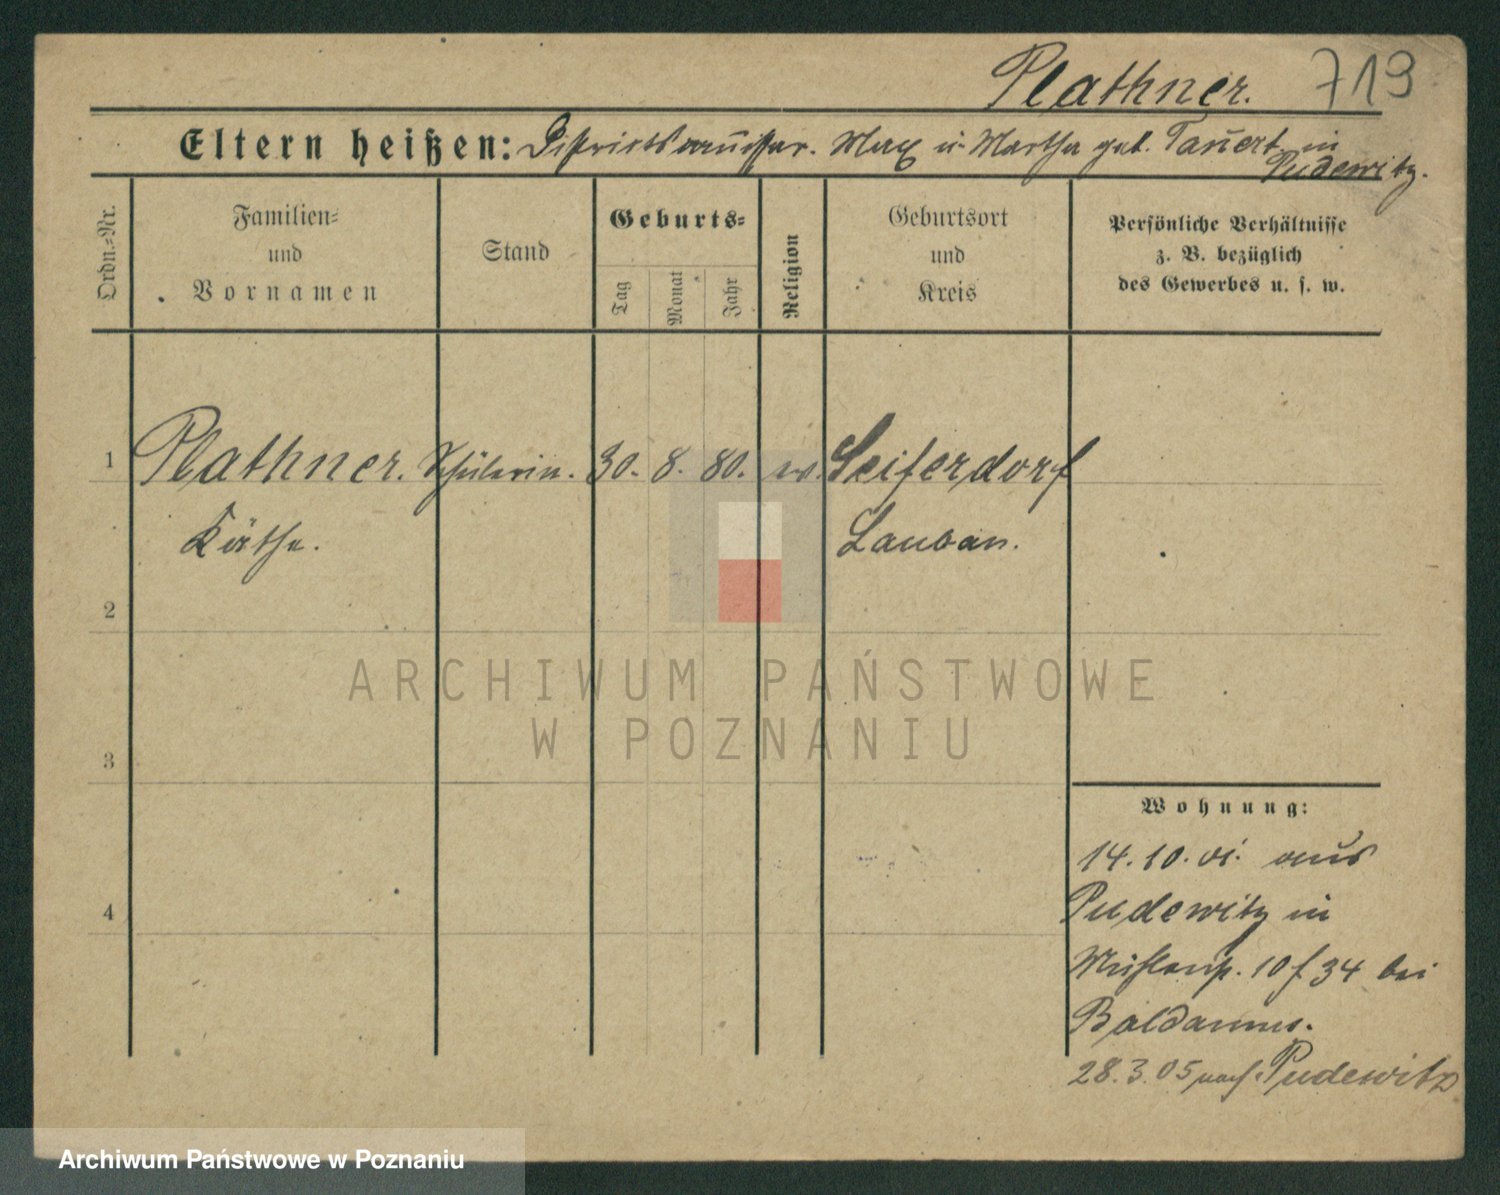 Plathner. 719
Eltern heißen: Distriktskommissar. Max u. Martha geb. Tauert in
Pudewitz.
Ordn.=Nr.
Familien=
und
Vornamen
Stand
Geburts=
Tag
Monat
Jahr
Religion
Geburtsort
und
Kreis
Persönliche Verhältnisse
z. B. bezüglich
des Gewerbes u. s. w.
1 Plathner. Schülerin. 30. 8. 80. ev. Seiferdorf
Käthe. Lauban.
2
ARCHIWUM PAŃSTWOWE
W POZNANIU
3
Wohnung:
14.10.01. aus
4 Pudewitz in
Mühlenstr. 10 f. 34 bei
Baldamus.
28.3.05 nach Pudewitz
Archiwum Państwowe w Poznaniu